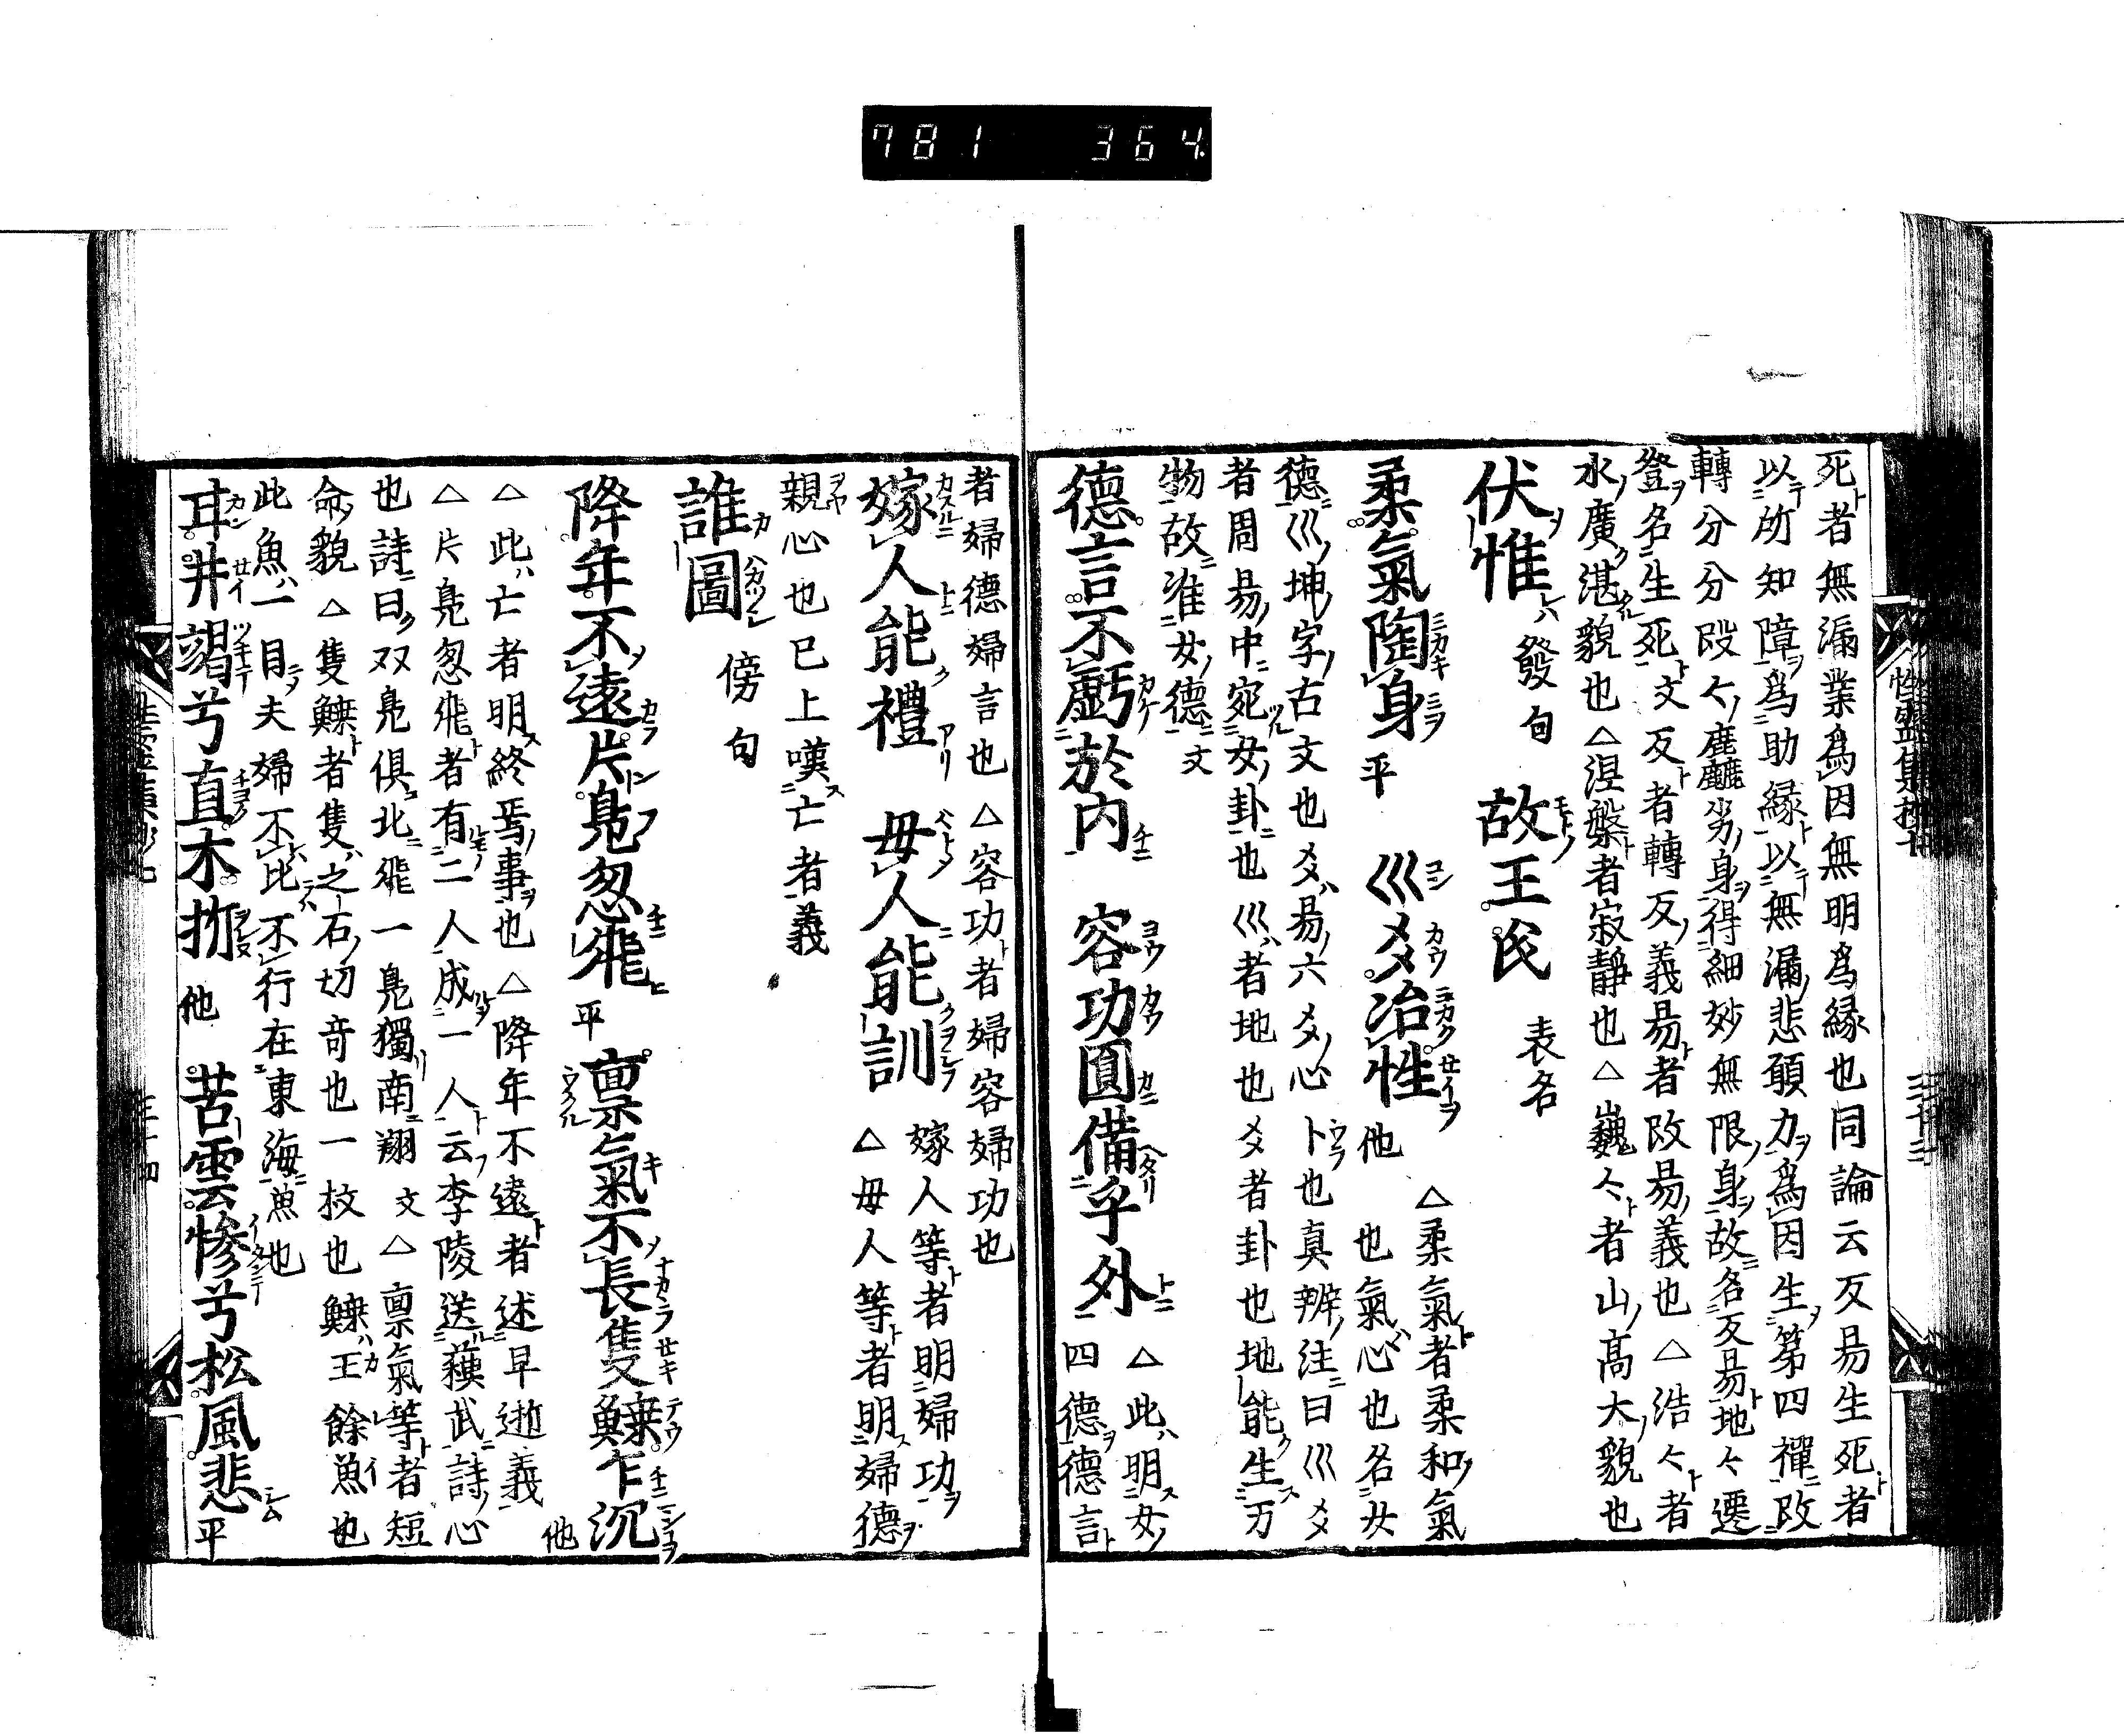 781 364
死者無漏業爲因無明爲緣也同論云変易生死者
以所知障爲助緣以無漏悲願力爲因生第四禪改
轉分分段〻麁劣身得細妙無限身故名変易地〻遷
登名生死文変者轉変義易者改易義也△浩〻者
水廣湛貌也△涅槃者寂靜也△巍〻者山高大貌也
伏惟 發句 故王氏 表名
柔氣陶身 平 巛爻冶性 他 △柔氣者柔和氣也氣心也名女
德巛坤字古文也爻易六爻心卜也真辨注曰巛爻
者周易中宛女卦也巛者地也爻者卦也地能生万
物故准女德文
德言不虧於内 容功圓備乎外 △此明女四德德言
者婦德婦言也△容功者婦容婦功也
嫁人能禮 母人能訓 嫁人等者明婦功△母人等者明婦德
親心也已上嘆亡者義
誰圖 傍句
降年不遠片鳧忽飛 平 禀氣不長隻鰈乍沉 他
△此亡者明終焉事也△降年不遠者述早逝義
△片鳧忽飛者有二人成一人云李陵送蘇武詩心
也詩曰双鳧俱北飛一鳧獨南翔文△禀氣等者短
命貌△隻鰈者隻之石切奇也一枚也鰈王餘魚也
此魚一目夫婦不比不行在東海魚也
甘井竭兮直木折 他 苦雲惨兮松風悲 平